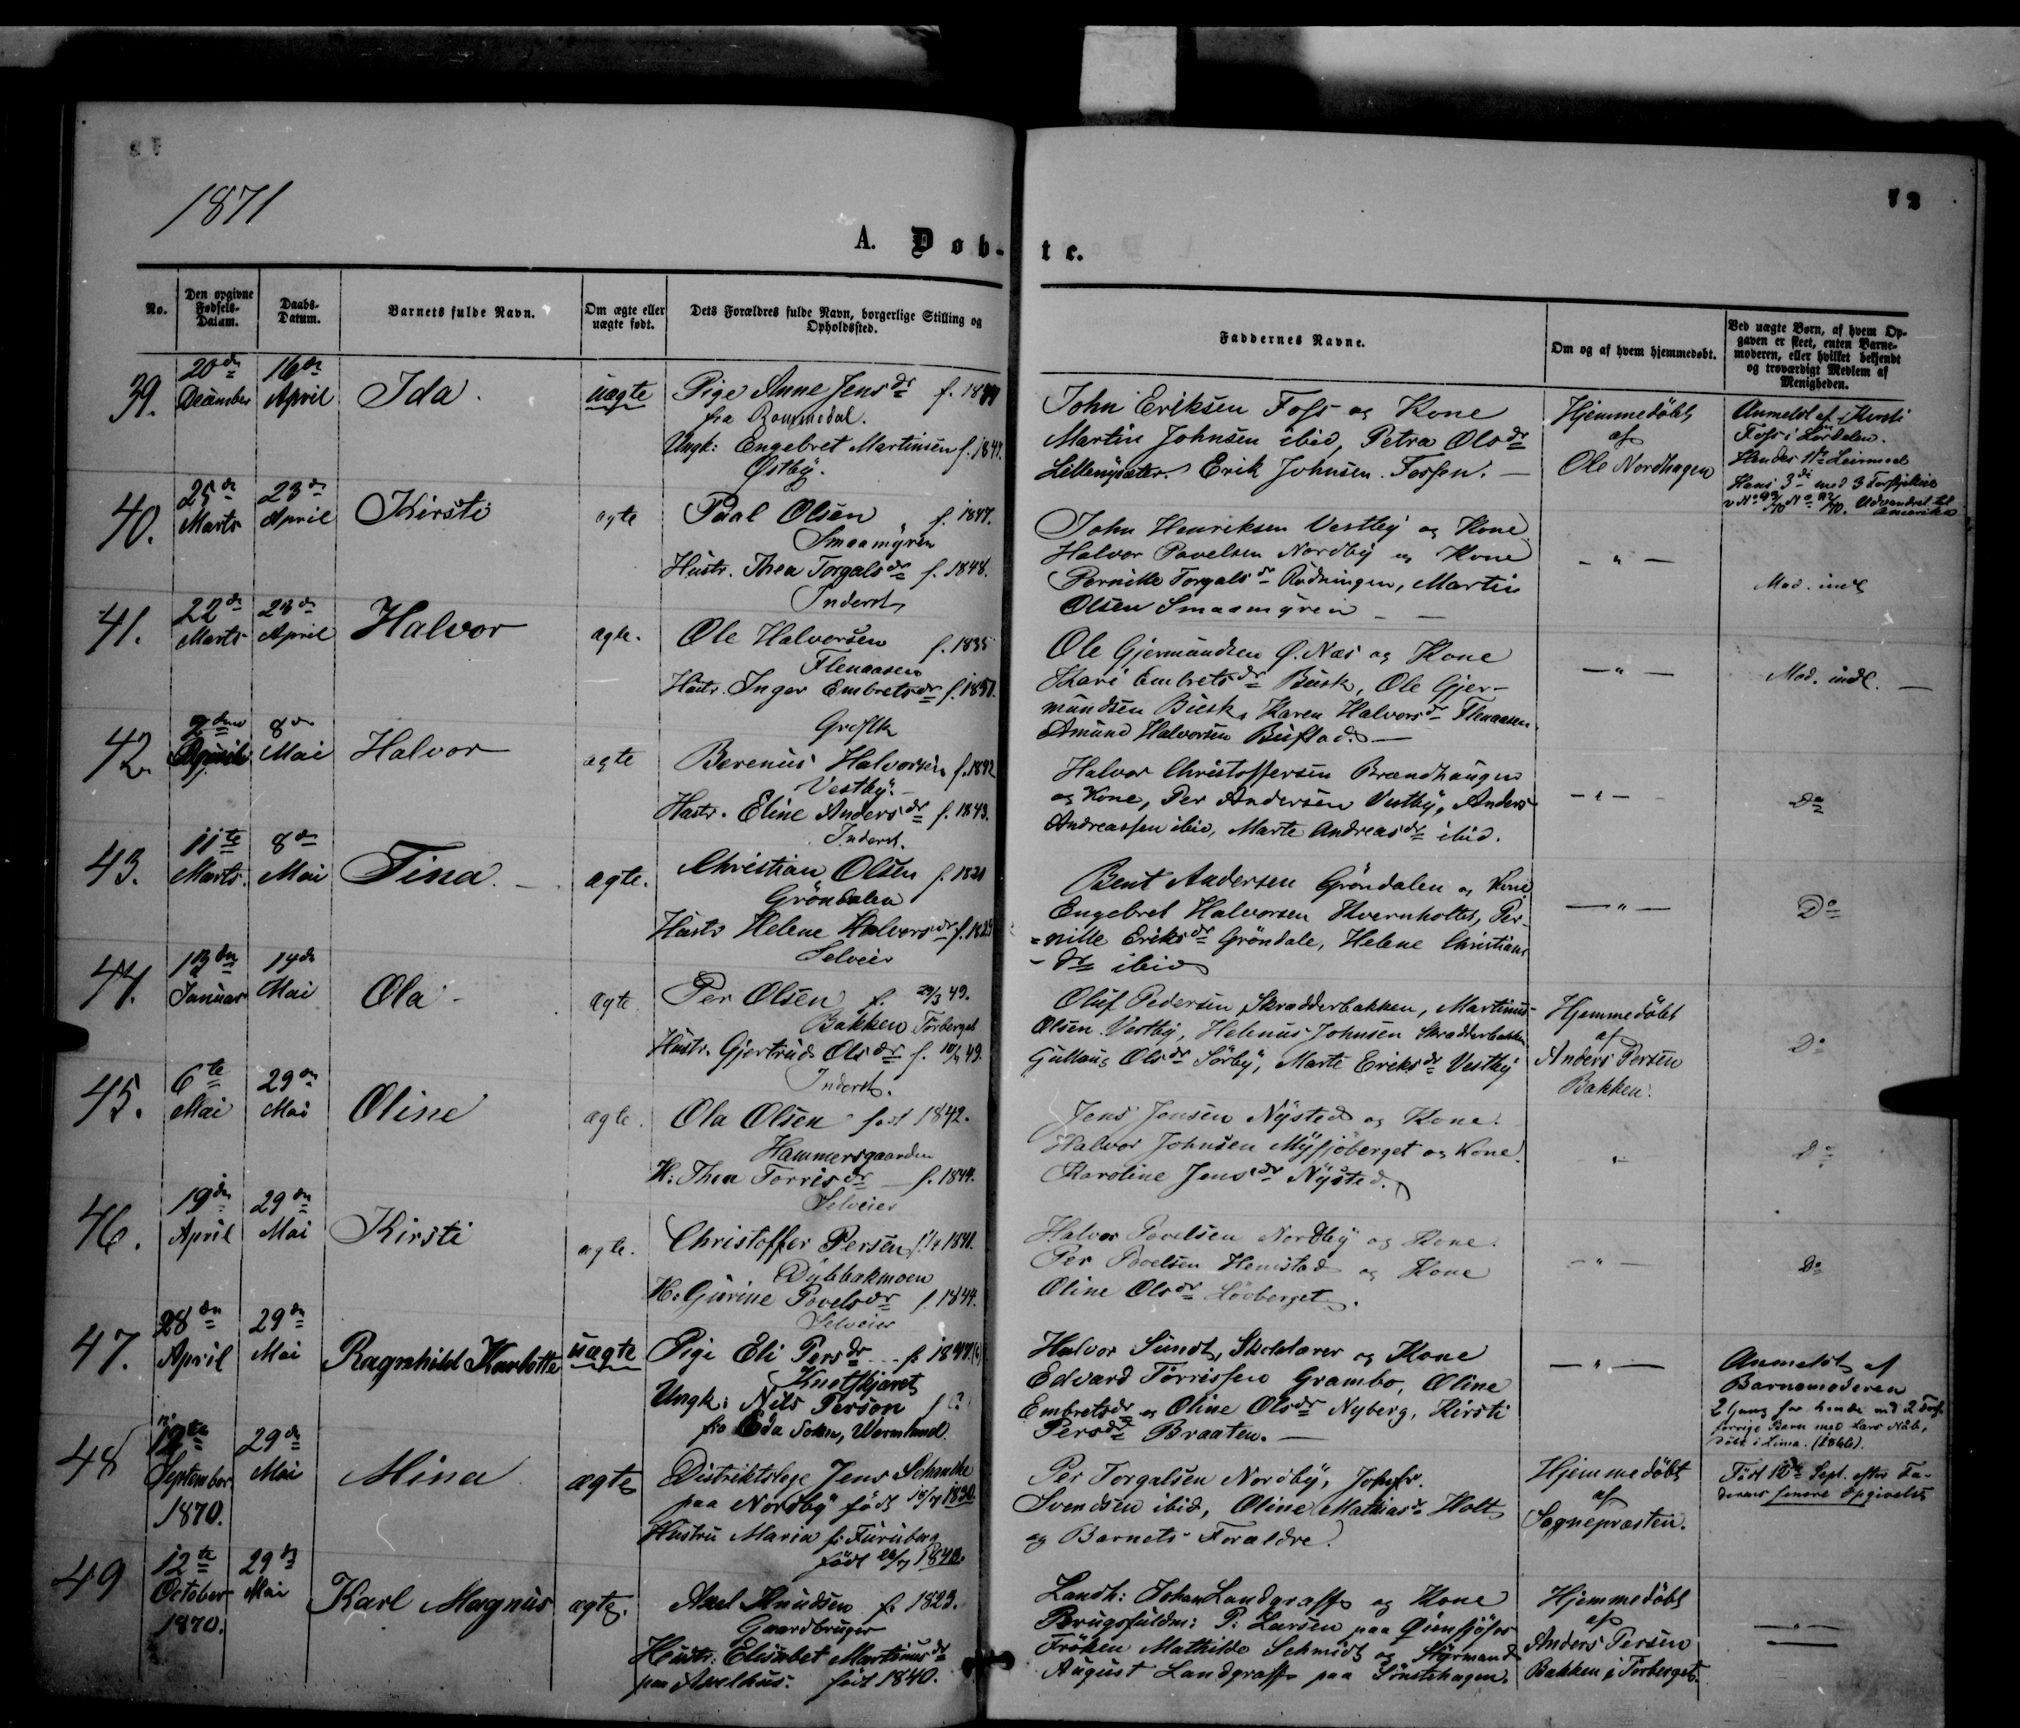 1871
72
A. Døb-
te.
No.
Den opgivne Fødsels-Datum.
Daabs-Datum.
Barnets fulde Navn.
Om ægte eller uægte født.
Dets Forældres fulde Navn, borgerlige Stilling og Opholdssted.
Faddernes Navne.
Om og af hvem hjemmedøbt.
Ved uægte Børn, af hvem Opgaven er skeet, enten Barnemoderen, eller hvilket bekjendt og troværdigt Medlem af Menigheden.
39.
20de December
16de April
Ida.
uægte
Pige Anne Jensdr f.
fra Rommedal.
Ungk: Engebret Martinsen f. 1847.
Østby.
John Eriksen Foss og Kone
Martin Johnsen ibid, Petra Olsdr
Lillenysæter. Erik Johnsen Fossen.
Hjemmedöbt
af
Ole Nordhagen
Anmeldt af
Foss i Lördalen.
40.
25de Marts
23de April
Kirsti
ægte
Paal Olsen f. 1847.
Smaamyren
Hustr. Thea Torgalsdr f. 1848.
Inderst
John Henriksen Vestby og Kone
Halvor Povelsen Nordby og Kone
Pernille Torgalsdr Rydningen, Martin
Olsen Smaamyren
- " -
Mod. indl
41.
22de Marts
23de April
Halvor
ægte.
Ole Halvorsen f. 1835
Flenaasen
Hustr. Inger Embretsdr
Ole Gjermundsen Ö. Næs og Kone
Kari Embretsdr Busk, Ole Gjer-
mundsen Busk, Karen Halvorsdr Flenaasen.
Amund Halvorsen
- " -
Mod. indl.
42.
2den
8de Mai
Halvor
ægte
Berenus Halvorsen f. 1842
Vestby.
Hustr. Eline Andersdr f. 1843.
Inderst.
Halvor Christoffersen Brændhaugen
og Kone, Per Andersen Vestby, Anders
Andreassen ibid, Marte Andreasdr ibid.
- " -
Do
43.
11te Marts.
8de Mai
Tina.
ægte.
Christian Olsen
Gröndalen
Hustr Helene Halvorsdr
Selveier
Bent Andersen Gröndalen og Kone
Engebret Halvorsen Kvernholtet, Per-
=nille Eriksdr Gröndale, Helene Christians
- dr ibid
- " -
Do
44.
Januar
14de Mai
Ola
ægte.
Per Olsen f. 29/3 49.
Bakken Törberget
Hustr. Gjertrud Olsdr f. 49.
Inderst.
Oluf Pedersen Skrædderbakken, Martinus
Olsen Vestby, Helenus Johnsen Skrædderbakken
Gullaug Olsdr Sörby, Marte Eriksdr Vestby
Hjemmedöbt
af
Anders Persen
Bakken.
Do
45.
6te Mai
29de Mai
Oline
ægte.
Ola Olsen født 1842.
Hammersgaarden
H. Thea Torrisdr f. 1844.
Selveier
Jens Jensen Nysted og Kone.
Halvor Johnsen Mysjöberget og Kone.
Karoline Jensdr Nysted.
"
Do
46.
19de April
29de Mai
Kirsti
ægte.
Christoffer Persen 1841.
Dybbakmoen
H. Gurine Povelsdr f. 1844.
Selveier
Halvor Povelsen Nordby og Kone.
Per Povelsen Hemstad og Kone
Oline Olsdr Lövberget.
- " -
Do
47.
28de April
29de Mai
Ragnhild Karlotte
uægte
Pige Eli Persdr
Ungk: Nils Person f (?)
fra Eda Sokn, Wermland.
Halvor Sundt, Skolelærer og Kone
Edvard Törrissen Grambo, Oline
Embretsdr og Oline Olsdr Nyberg, Kirsti
Persdr Braaten.
- " -
Anmeldt af
Barnemoderen
2 Gang for hende
forrige Barn med Lars
döbt i Lima. (1866).
48
September
1870.
29de Mai
Mina
ægte
Distriktslæge Jens Schanche
paa Nordby født 1830.
Hustru Maria f. Furuberg
født 1843.
Per Torgalsen Nordby, Johs fr.
Svendsen ibid, Oline Mathiasdr Holt
og Barnets Forældre.
Hjemmedöbt
af
Sognepræsten.
Født Sept. efter Fa-
derens senere Opgivelse
49
12te October
1870.
29de Mai
Karl Magnus
ægte.
Axel Knudsen f. 1823.
Gaardbruger
Hustr: Elisabet Martinusdr
paa Axelhus. født 1840.
Landh: Johan Landgraff og Kone
Brugsfuldm: P. Larsen paa
Fröken Mathilde Schmidt og Styrmand
August Landgraff paa Sönstehagen.
Hjemmedöbt
af
Anders Persen
Bakken i Törberget.
- " -